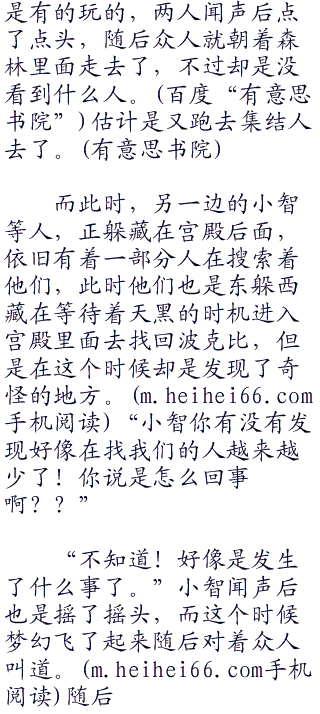 是有的玩的，两人闻声后点
了点头，随后众人就朝着森
林里面走去了，不过却是没
看到什么人。(百度“有意思
书院”)估计是又跑去集结人
去了。(有意思书院)
而此时，另一边的小智
等人，正躲藏在宫殿后面，
依旧有着一部分人在搜索着
他们，此时他们也是东躲西
藏在等待着天黑的时机进入
宫殿里面去找回波克比，但
是在这个时候却是发现了奇
怪的地方。(m.heihei66.com
手机阅读)“小智你有没有发
现好像在找我们的人越来越
少了！你说是怎么回事
啊？？”
“不知道！好像是发生
了什么事了。”小智闻声后
也是摇了摇头，而这个时候
梦幻飞了起来随后对着众人
叫道。(m.heihei66.com手机
阅读)随后